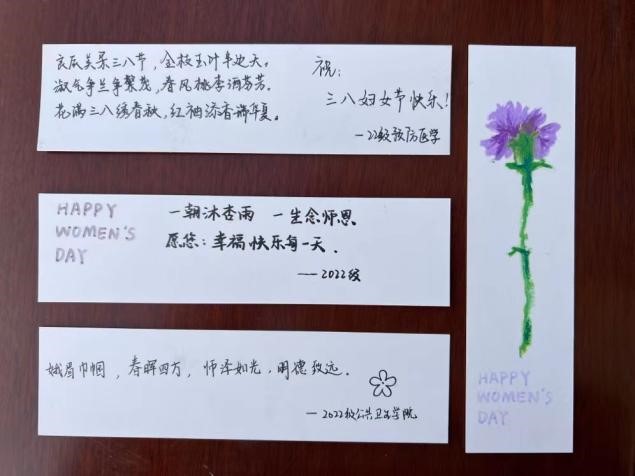 三八节，金枝玉叶半边天。
淑气争兰争繁茂，春风桃李酒芬芳。
花满三八绣春秋，红袖添香瑞华夏。
祝：
三八妇女节快乐！
—22级预防医学
HAPPY
WOMEN'S
DAY
一朝沐杏雨 一生念师恩
愿您：幸福快乐每一天.
——2022级
娥眉巾帼，春晖四方，师泽如光，明德致远.
—2022级公共卫生学院
HAPPY
WOMEN'S
DAY